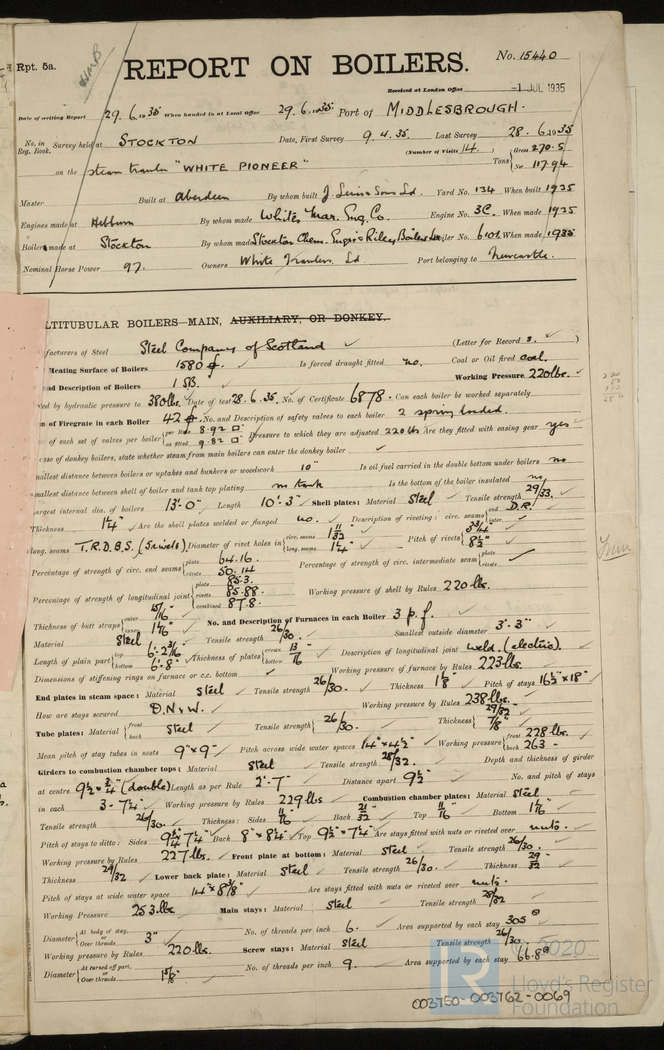 Rpt. 5a.
REPORT ON BOILERS.
No. 15440
Received at London Office -1 JUL 1935
Date of writing Report 29.6.1935 When handed in at Local Office 29.6.1935 Port of MIDDLESBROUGH.
No. in Reg. Book. Survey held at STOCKTON Date, First Survey 9.4.35. Last Survey 28.6.1935
(Number of Visits 14.)
on the steam trawler "WHITE PIONEER" Tons Gross 270.5 Net 117.94
Master Built at Aberdeen By whom built J. Lewis & Sons Ld. Yard No. 134 When built 1935
Engines made at Hebburn By whom made White's Mar. Eng. Co. Engine No. 3C. When made 1935
Boilers made at Stockton By whom made Stockton Chem. Engrs & Riley Boilers Ld. Boiler No. 6101. When made 1935
Nominal Horse Power 97. Owners White Trawlers Ld Port belonging to Newcastle.
LTITUBULAR BOILERS—MAIN, AUXILIARY, OR DONKEY.
facturers of Steel Steel Company of Scotland (Letter for Record S. )
Heating Surface of Boilers 1580 Is forced draught fitted no. Coal or Oil fired coal.
nd Description of Boilers 1 SB. Working Pressure 220 lbs.
ed by hydraulic pressure to 380 lbs. Date of test 28.6.35. No. of Certificate 6878. Can each boiler be worked separately
of Firegrate in each Boiler 42 No. and Description of safety valves to each boiler 2 spring loaded.
of each set of valves per boiler per Rule 8.92 as fitted 9.82 Pressure to which they are adjusted 220 lbs Are they fitted with easing gear yes
ase of donkey boilers, state whether steam from main boilers can enter the donkey boiler
mallest distance between boilers or uptakes and bunkers or woodwork 10" Is oil fuel carried in the double bottom under boilers no
mallest distance between shell of boiler and tank top plating no tank Is the bottom of the boiler insulated no
argest internal dia. of boilers 13'-0" Length 10'-3" Shell plates: Material Steel Tensile strength 29/33.
Thickness 1¼" Are the shell plates welded or flanged no. Description of riveting: circ. seams end D.R. inter.
long. seams T.R.D.B.S. (5 rivets) Diameter of rivet holes in circ. seams 1 11/32 long. seams 1¼" Pitch of rivets 3¾" 8½"
Percentage of strength of circ. end seams plate 64.16. rivets 50.14 Percentage of strength of circ. intermediate seam plate rivets
Percentage of strength of longitudinal joint plate 85.3. rivets 85.88. combined 87.8. Working pressure of shell by Rules 220 lbs.
Thickness of butt straps outer 15/16 inner 1 1/16 No. and Description of Furnaces in each Boiler 3 p.f.
Material Steel Tensile strength 26/30. Smallest outside diameter 3'.3"
Length of plain part top 6'-2 3/16 bottom 6'-8" Thickness of plates crown bottom 13/16 Description of longitudinal joint weld. (electric).
Dimensions of stiffening rings on furnace or c.c. bottom Working pressure of furnace by Rules 223 lbs.
End plates in steam space: Material Steel Tensile strength 26/30. Thickness 1⅛" Pitch of stays 16½" × 18"
How are stays secured D.N.W. Working pressure by Rules 238 lbs.
Tube plates: Material front back Steel Tensile strength 26/30. Thickness 29/32 7/8"
Mean pitch of stay tubes in nests 9" × 9" Pitch across wide water spaces 14" × 4½" Working pressure front 228 lbs. back 263
Girders to combustion chamber tops: Material Steel Tensile strength 28/32. Depth and thickness of girder
at centre 9½ × ¾" (double) Length as per Rule 2'-7" Distance apart 9½" No. and pitch of stays
in each 3 - 7¼" Working pressure by Rules 229 lbs Combustion chamber plates: Material Steel
Tensile strength 26/30. Thickness: Sides 11/16 Back 21/32 Top 11/16 Bottom 1 1/16
Pitch of stays to ditto: Sides 9¼ × 7¼" Back 8" × 8¼" Top 9½" × 7¼" Are stays fitted with nuts or riveted over nuts.
Working pressure by Rules 227 lbs. Front plate at bottom: Material Steel Tensile strength 26/30.
Thickness 29/32 Lower back plate: Material Steel Tensile strength 26/30. Thickness 29/32
Pitch of stays at wide water space 14" × 8⅜" Are stays fitted with nuts or riveted over nuts.
Working Pressure 253 lbs Main stays: Material Steel Tensile strength 28/32
Diameter At body of stay, or Over threads 3" No. of threads per inch 6. Area supported by each stay 305
Working pressure by Rules 220 lbs. Screw stays: Material Steel Tensile strength 26/30
Diameter At turned off part, or Over threads 1⅝" No. of threads per inch 9. Area supported by each stay 66.8
© 2020
LR
Lloyd's Register
Foundation
003750-003762-0069